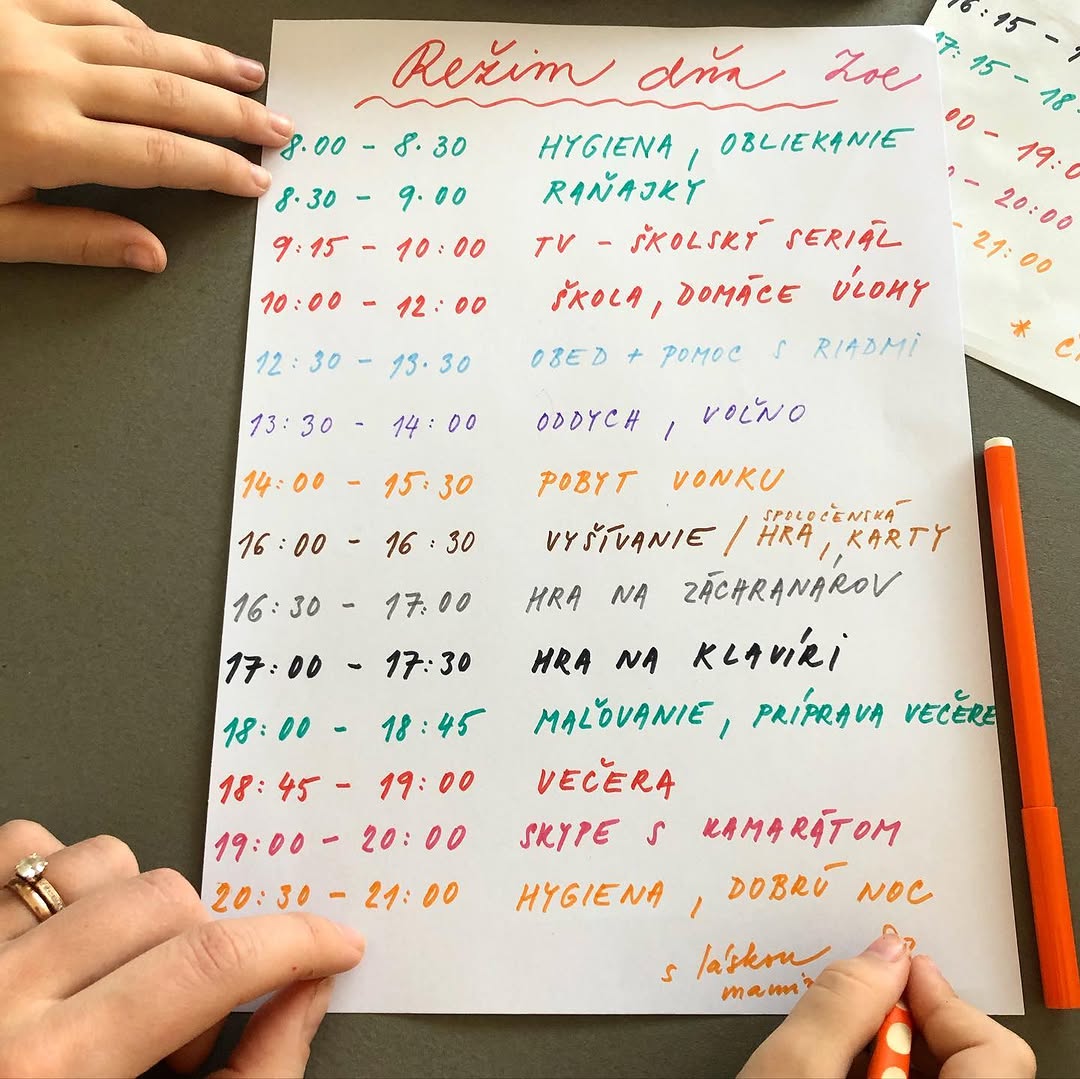 Režim dňa Zoe
8.00 - 8.30 HYGIENA, OBLIEKANIE
8.30 - 9.00 RAŇAJKY
9:15 - 10:00 TV - ŠKOLSKÝ SERIÁL
10:00 - 12:00 ŠKOLA, DOMÁCE ÚLOHY
12:30 - 13.30 OBED + POMOC S RIADMI
13:30 - 14:00 ODDYCH, VOĽNO
14:00 - 15:30 POBYT VONKU
16:00 - 16:30 VYŠÍVANIE / SPOLOČENSKÁ HRA, KARTY
16:30 - 17:00 HRA NA ZÁCHRANÁROV
17:00 - 17:30 HRA NA KLAVÍRI
18:00 - 18:45 MAĽOVANIE, PRÍPRAVA VEČERE
18:45 - 19:00 VEČERA
19:00 - 20:00 SKYPE S KAMARÁTOM
20:30 - 21:00 HYGIENA, DOBRÚ NOC
s láskou
16:15 -
17:15 - 18
00 - 19:0
- 20:00
- 21:00
*